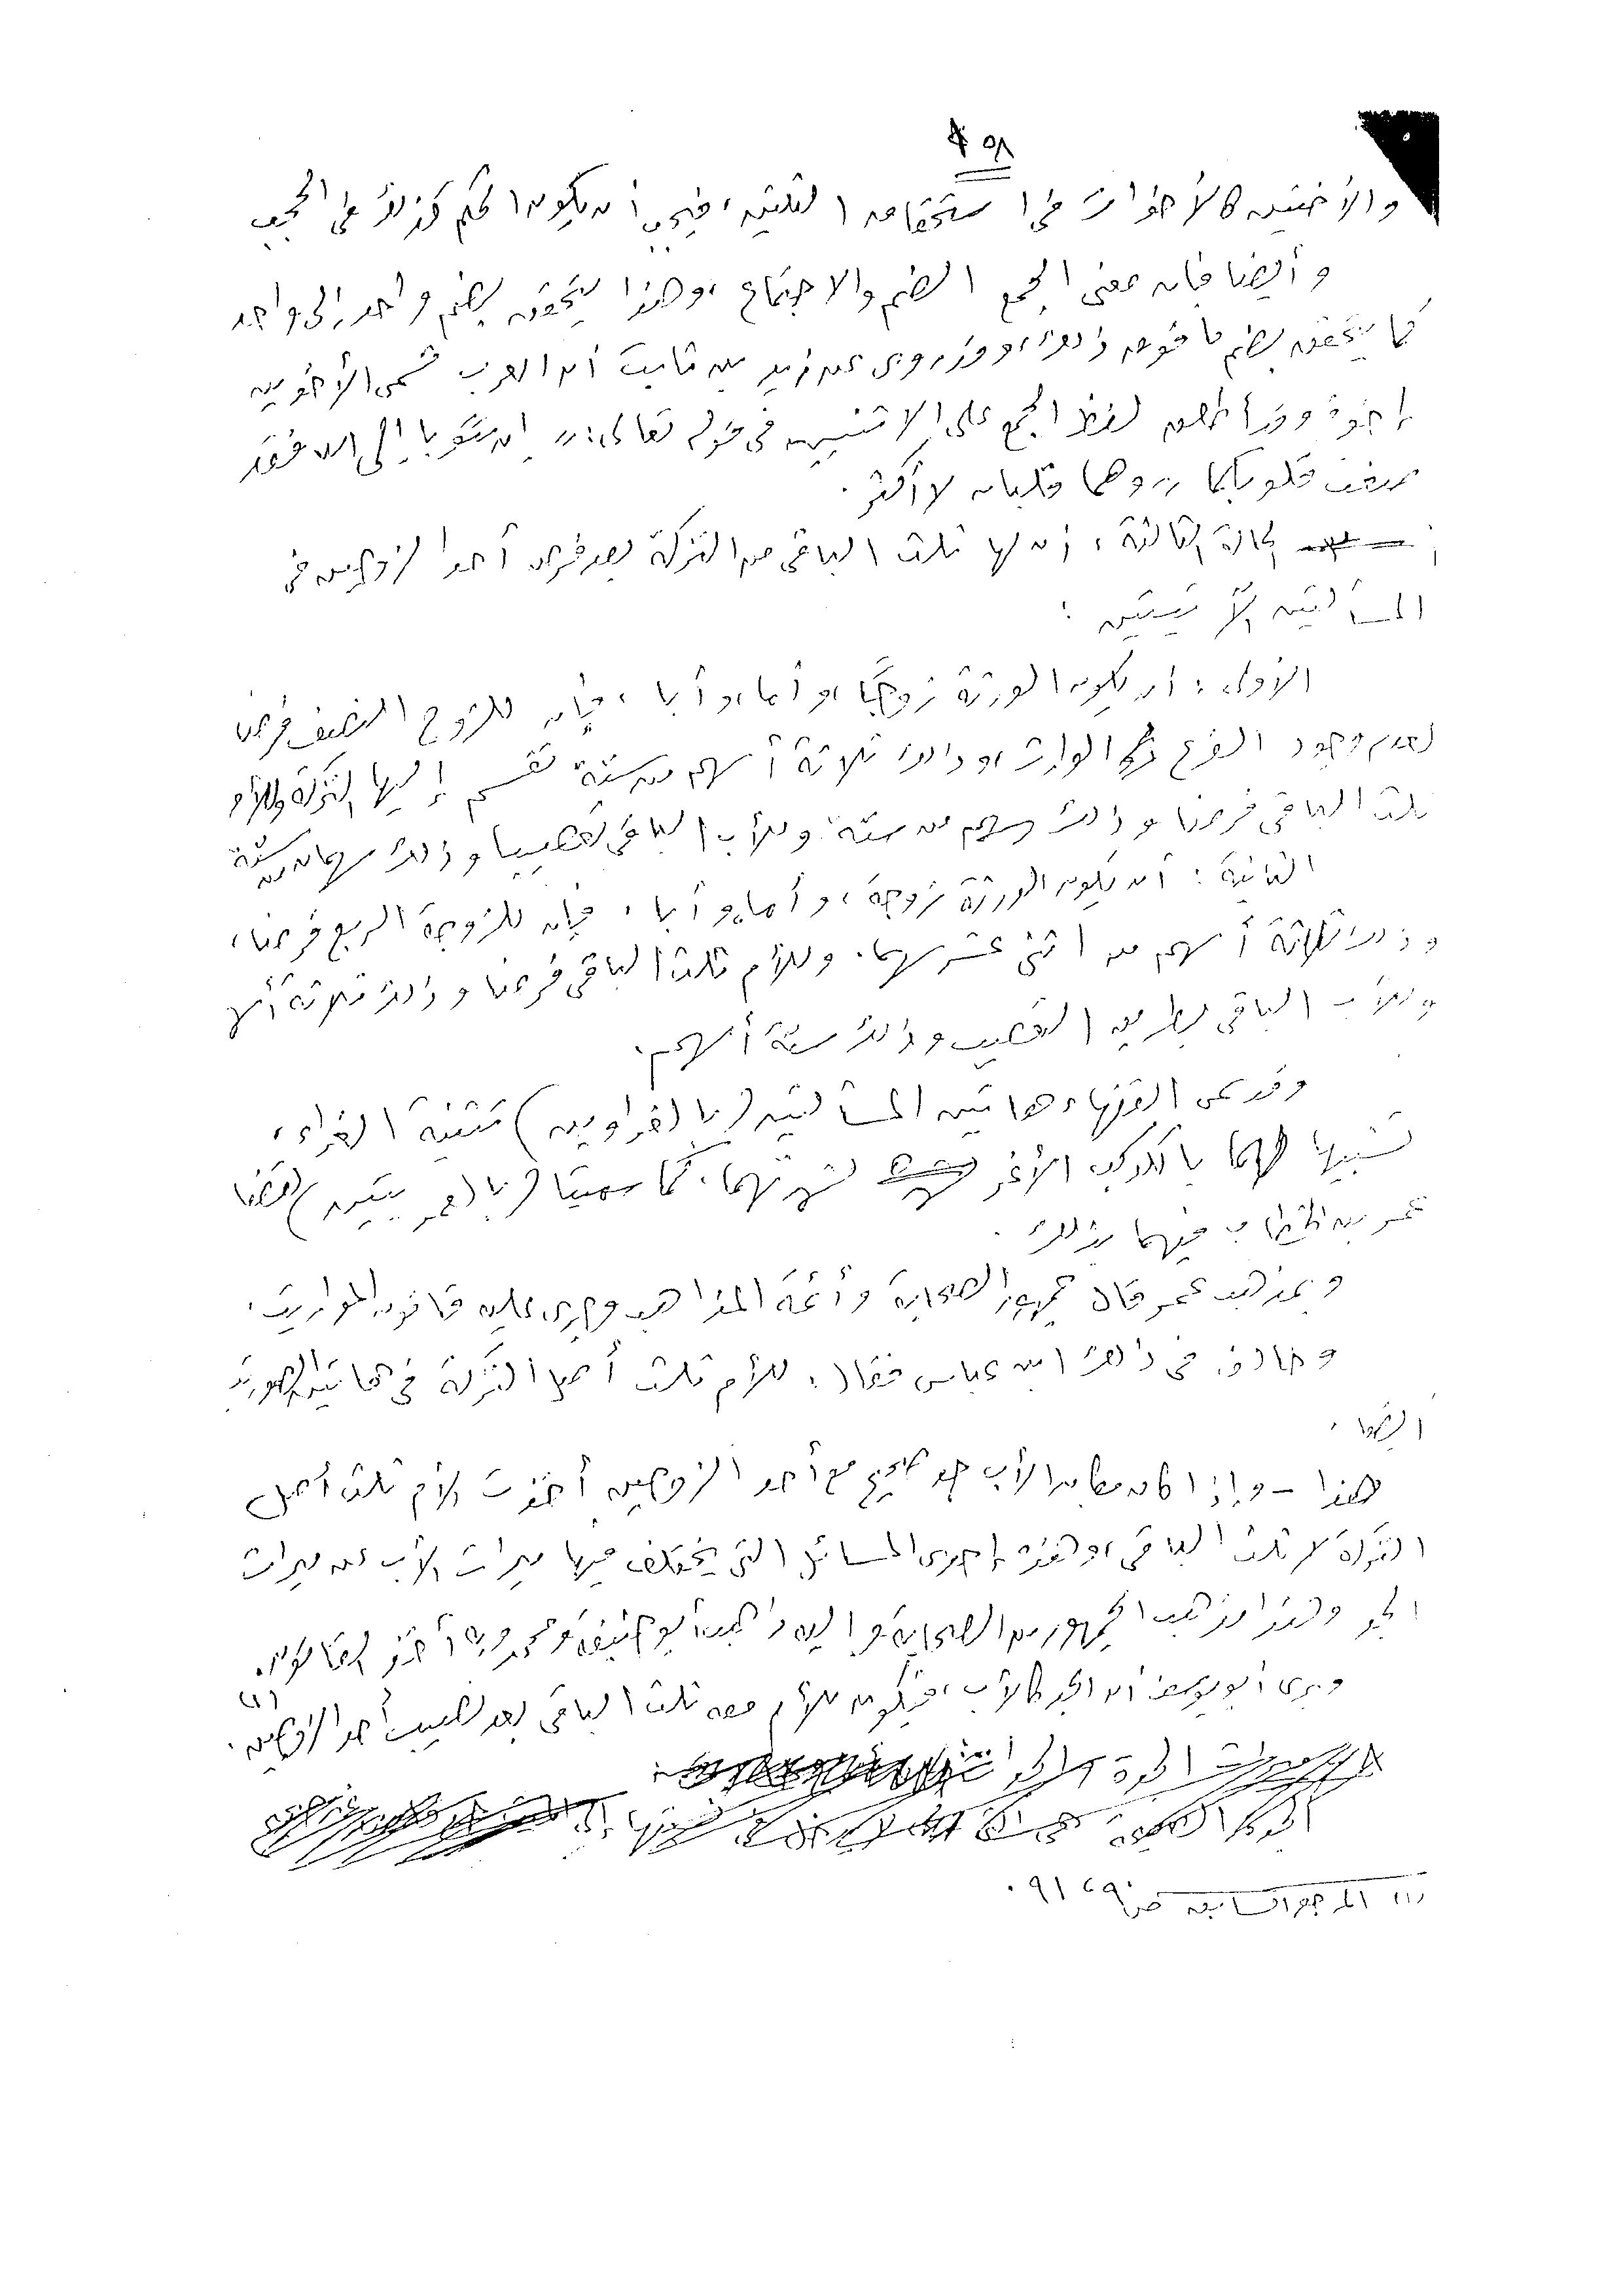 ٥٨
والأختين كالأخوات في استحقاق الثلثين، فيجب أن يكون الحكم كذلك في الحجب
وأيضا فإن معنى الجمع الضم والاجتماع، وهذا يتحقق بضم واحد إلى واحد
كما يتحقق بضم ما فوق ذلك، وقد روى عن زيد بن ثابت أن العرب تسمى الأخوين
إخوة وقد أطلق لفظ الجمع على الاثنين فى قوله تعالى: " إن تتوبا إلى الله فقد
صغت قلوبكما " وهما قلبان لا أكثر.
الحالة الثالثة: أن لها ثلث الباقى من التركة بعد فرض أحد الزوجين فى
المسألتين الآتيتين:
الأولى: أن يكون الورثة زوجًا، وأما، وأبا، فإن للزوج النصف فرضا
لعدم وجود الفرع الوارث، وذلك ثلاثة أسهم من ستة تقسم إليها التركة وللأم
ثلث الباقى فرضا وذلك سهم من ستة، وللأب الباقى تعصيبا وذلك سهمان من ستة
الثانية: أن يكون الورثة زوجة، وأما، وأبا، فإن للزوجة الربع فرضا،
وذلك ثلاثة أسهم من اثنى عشر سهما، وللأم ثلث الباقى فرضا وذلك ثلاثة أسهم
وللأب الباقى بطريق التعصيب وذلك ستة أسهم.
وقد سمى الفقهاء هاتين المسألتين (بالغراوين) تثنية الغراء،
تشبيها لهما بالكوكب الأغر لشهرتهما، كما سميتا (بالعمريتين) لقضاء
عمر بن الخطاب فيهما بذلك.
وبمذهب عمر قال جمهور الصحابة وأئمة المذاهب وجرى عليه قانون المواريث.
وخالف فى ذلك ابن عباس فقال: للأم ثلث أصل التركة فى هاتين الصورتين
أيضا.
هذا - وإذا كان مكان الأب جد صحيح مع أحد الزوجين أخذت الأم ثلث أصل
التركة لا ثلث الباقى، وهذه إحدى المسائل التى يختلف فيها ميراث الأب عن ميراث
الجد وهذا مذهب الجمهور من الصحابة وإليه ذهب أبو حنيفة ومحمد وبه أخذ القانون.
ويرى أبو يوسف أن الجد كالأب، فيكون للأم معه ثلث الباقى بعد نصيب أحد الزوجين. (١)
(١) المرجع السابق ص ٩٠، ٩١.